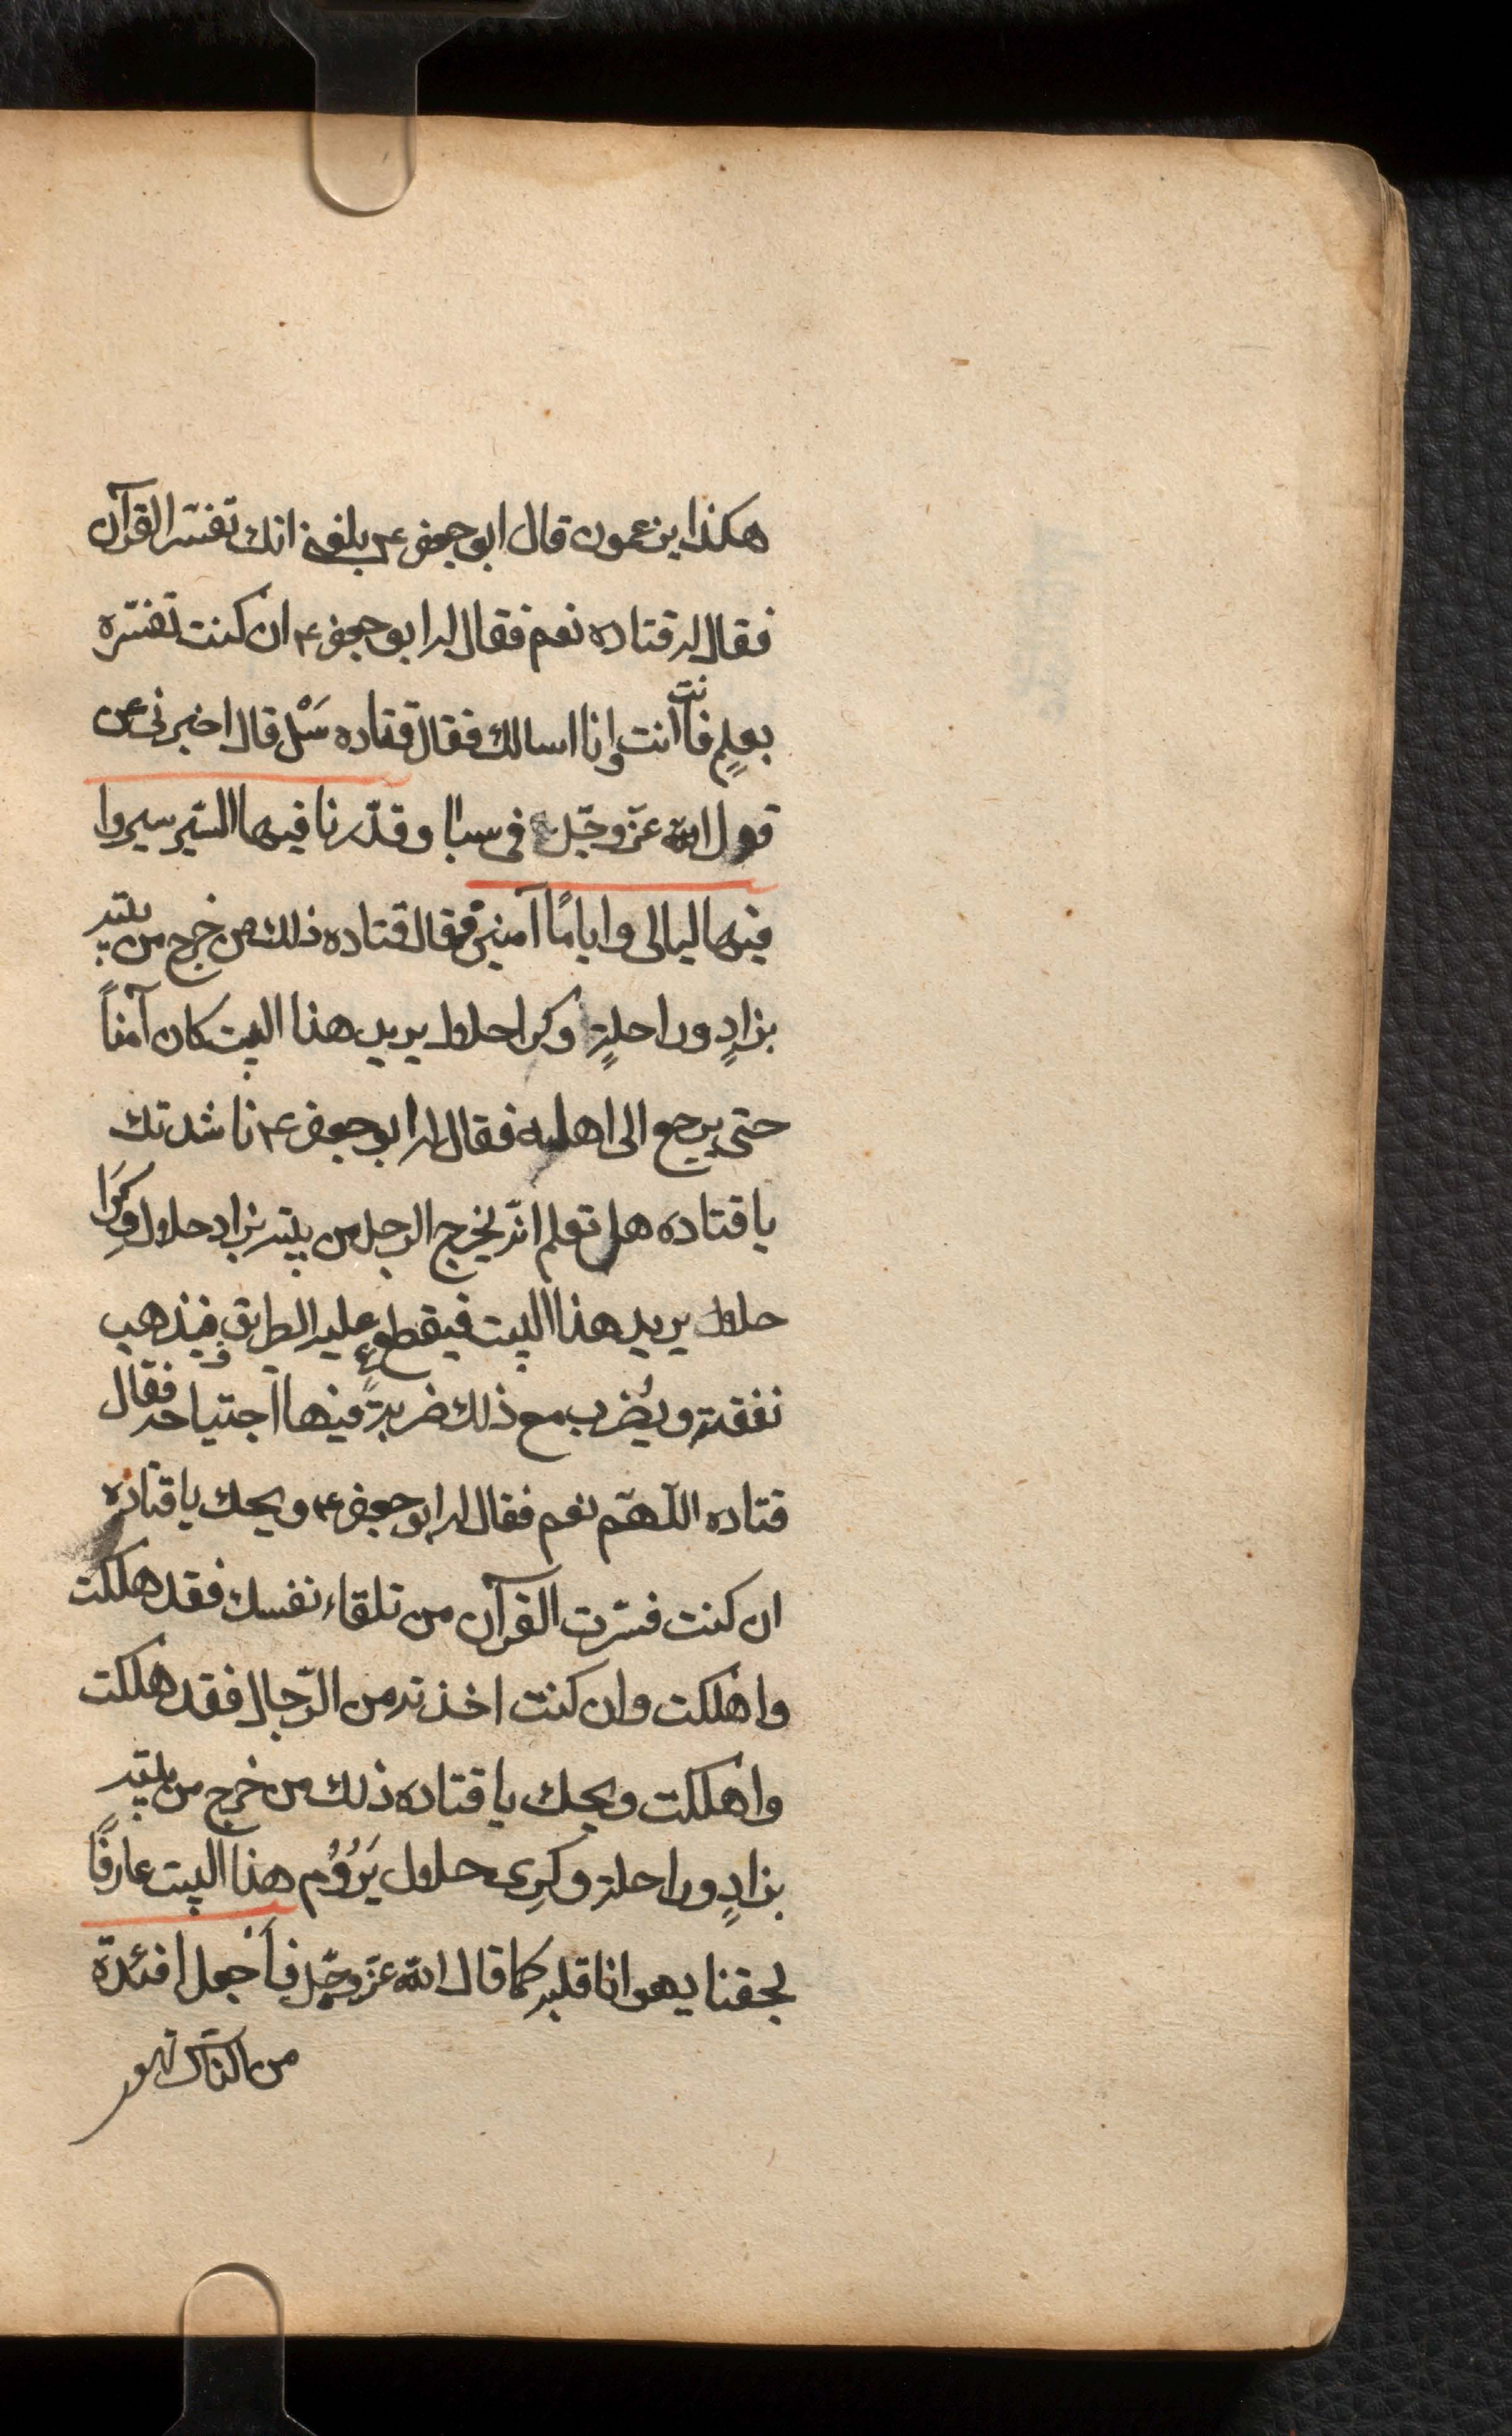 هكذا يزعمون قال ابو جعفر ع بلغني انك تفسّر القرآن
فقال له قتاده نعم فقال له ابو جعفر ع ان كنت تفسّره
بعلمٍ فانت انت وانا اسالك فقال قتاده سَلْ قال اخبرنى عن
قول الله عزّ وجّل فى سبا وقدّرنا فيها السّير سيروا
فيها ليالى واياماً آمنين فقال قتاده ذلك من خرج من بيته
بزادٍ وراحلةٍ وكرا حلال يريد هذا البيت كان آمناً
حتى يرجع الى اهله فقال له ابو جعفر ع ناشدتك
يا قتاده هل تعلم انّه يخرج الرجل من بيته بزاد حلال وكِرَا
حلال يريد هذا البيت فيقطع عليه الطريق فيذهب
نفقته ويُضرب مع ذلك ضربةً فيها اجتياحه فقال
قتاده اللّهمّ نعم فقال له ابو جعفر ع ويحك يا قتاده
ان كنت فسّرت القرآن من تلقاء نفسك فقد هلكت
واهلكت وان كنت اخذته من الرّجال فقد هلكت
واهلكت ويحك يا قتاده ذلك من خرج من بيته
بزادٍ وراحلة وكِرى حلال يَرُوُم هذا البيت عارفاً
بحقنا يهوانا قلبه كما قال الله عزّ وجّل فاَجْعل افئدة
من الناس تهو